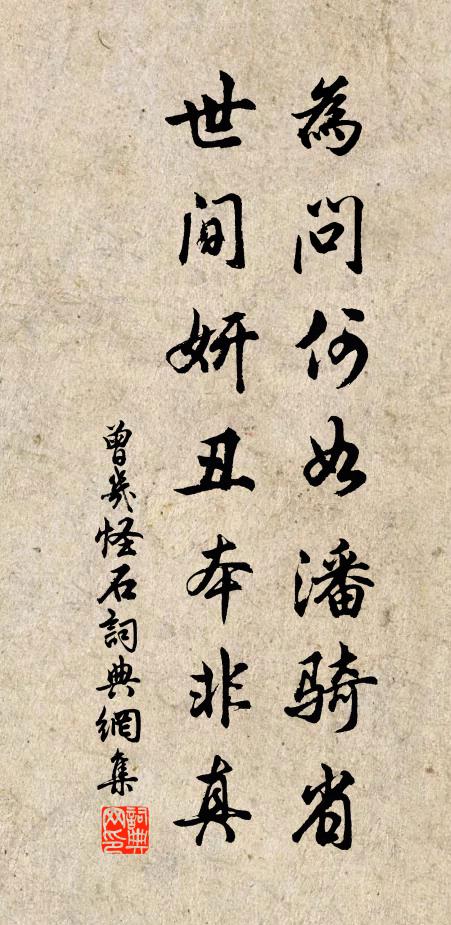 為問何如潘騎省
世间妍丑本非真
曾幾怪石詞典網集
詞典网印